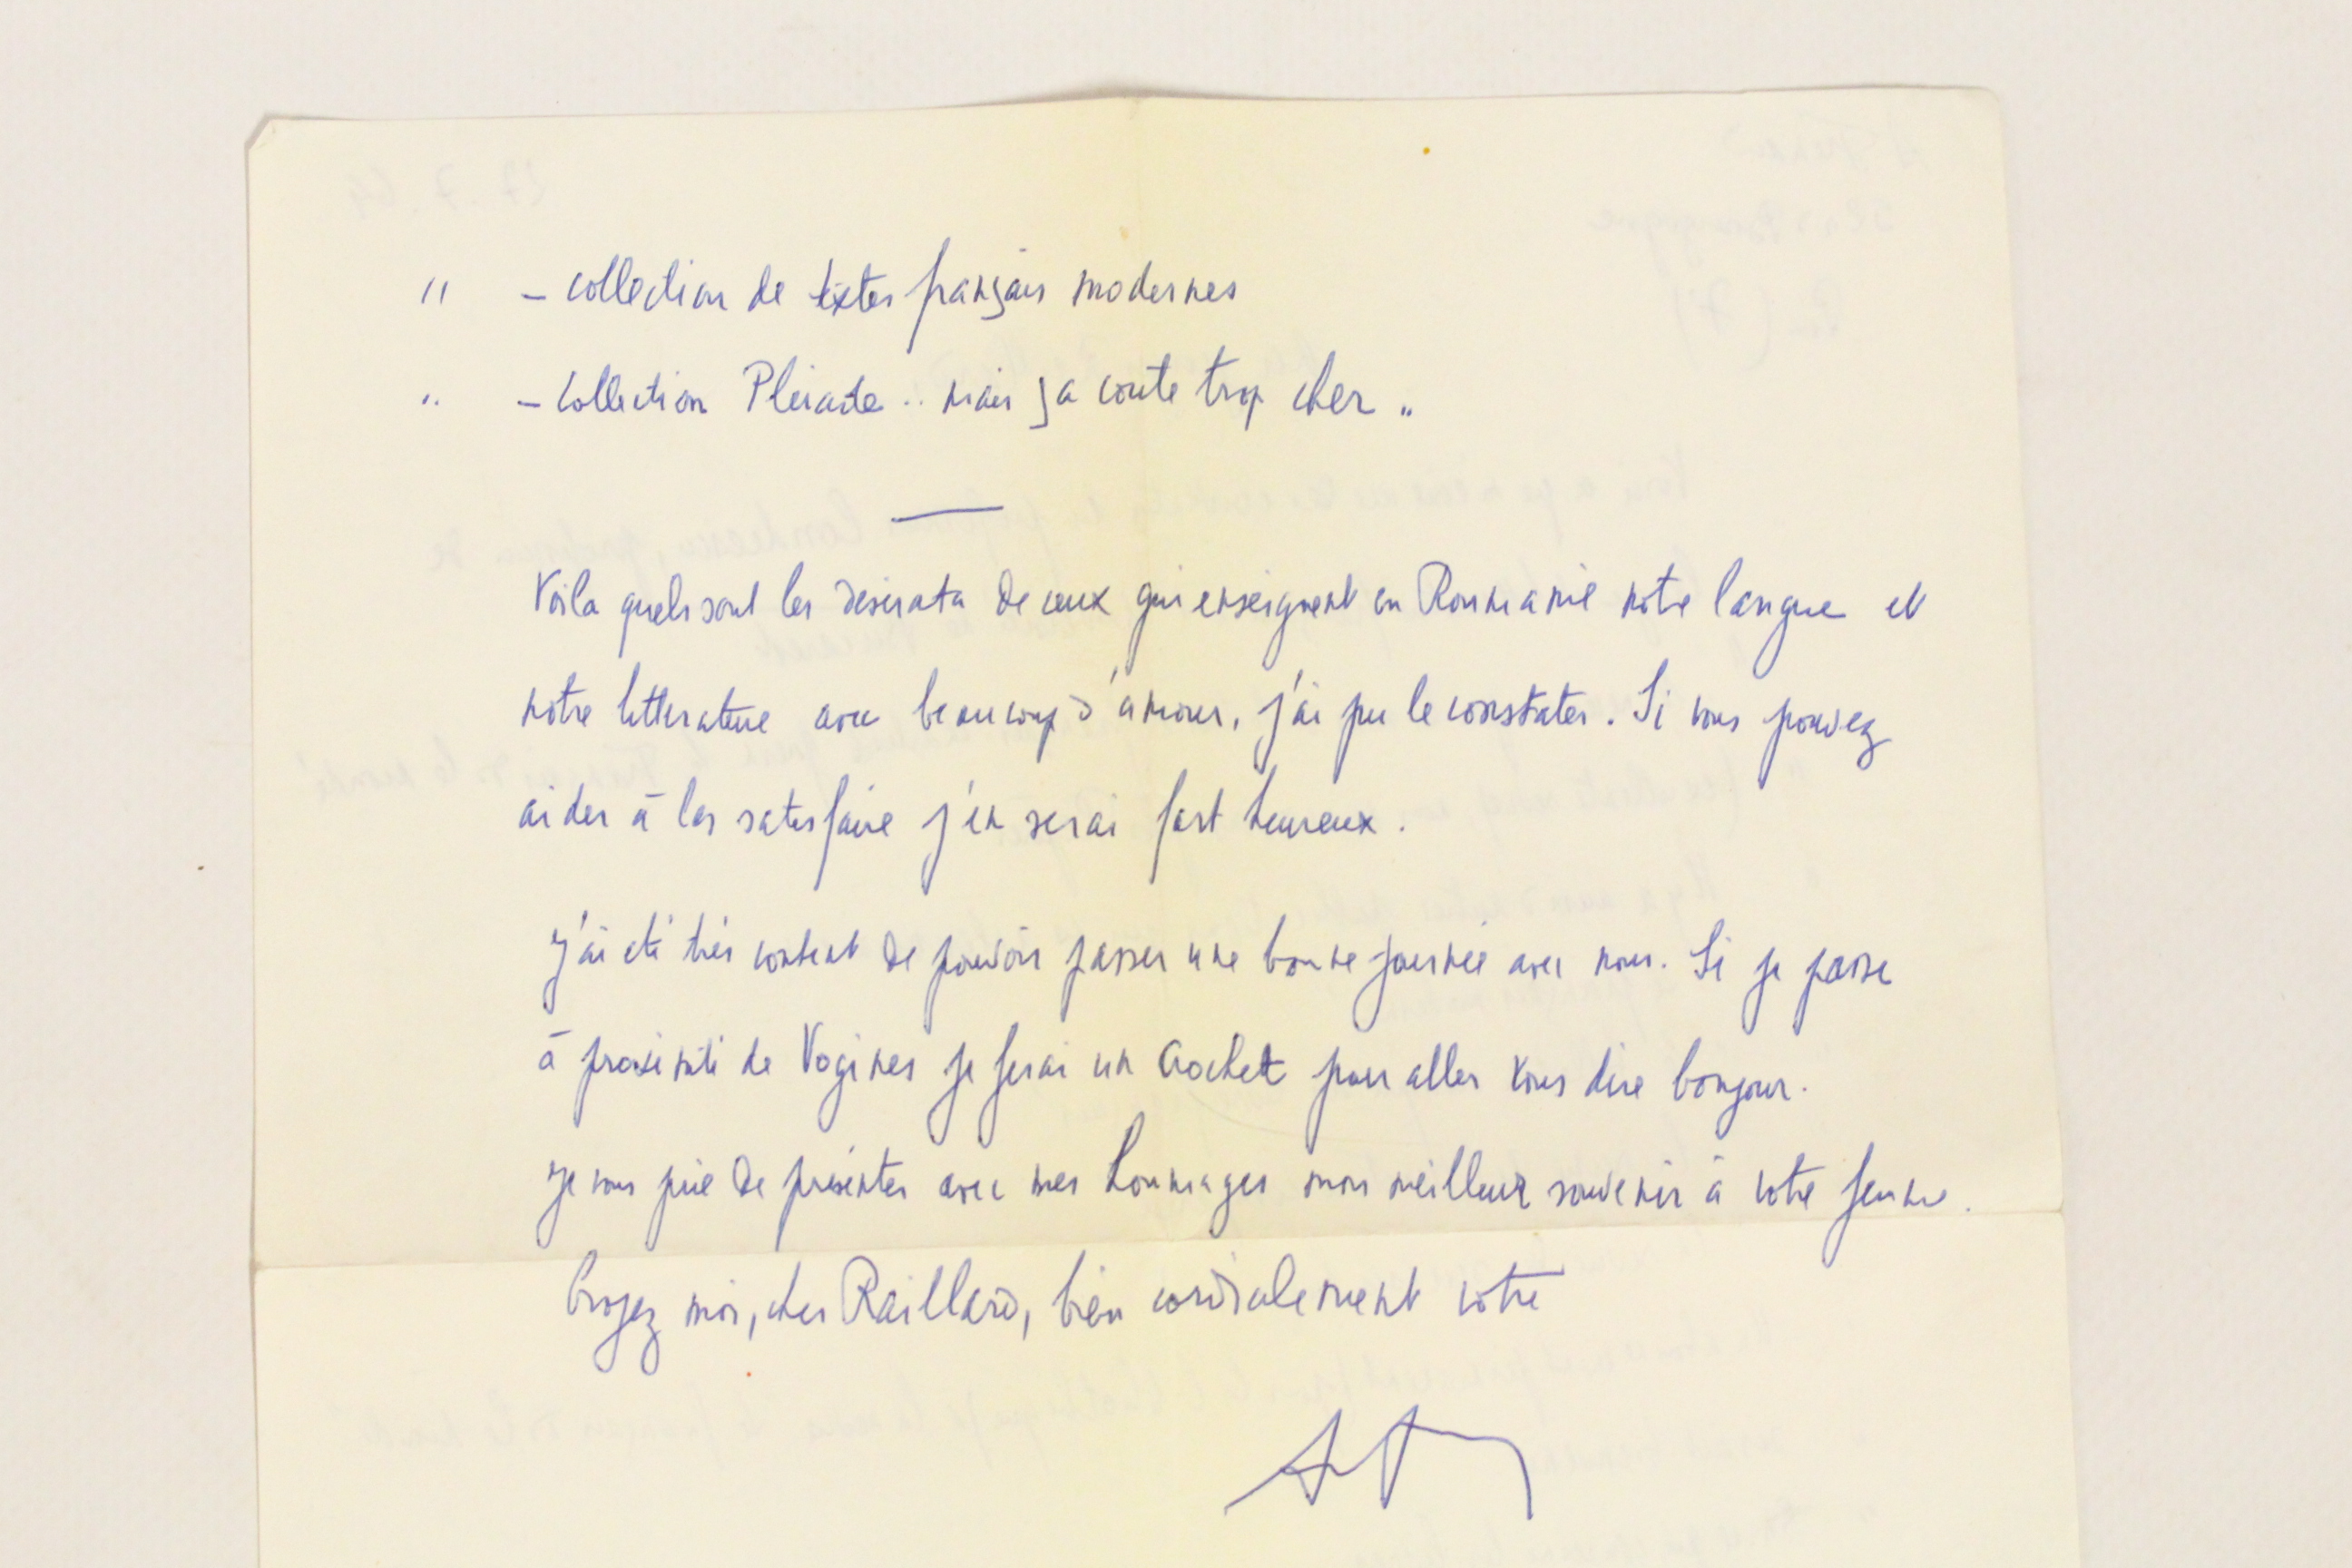 " – collection de textes français modernes
" – collection Pleiade .. mais ça coute trop cher ..
Voila quels sont les desirata de ceux qui enseignent en Roumanie notre langue et
notre litterature avec beaucoup d'amour, j'ai pu le constater. Si vous pouvez
aider à les satisfaire j'en serai fort heureux.
J'ai été très content de pouvoir passer une bonne journée avec vous. Si je passe
à proximité de je ferai un crochet pour aller vous dire bonjour.
Je vous prie de présenter avec mes hommages mon meilleur souvenir à votre femme.
Croyez moi, cher Raillard, bien cordialement votre